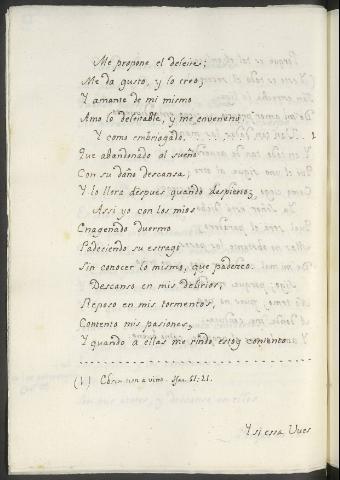 Me propone el deleite;
Me da gusto, y lo creo;
Y amante de mi mismo
Amo lo deleitable, y me enveneno;
Y como embriagado ......... 1
Que abandonado al sueño
Con su daño descansa;
Y lo llora despues quando despierto,
Assi yo con los mios
Enagenado duermo
Padeciendo su estrago
Sin conocer lo mismo, que padezco.
Descanso en mis delirios,
Reposo en mis tormentos,
Contento mis pasiones,
Y quando à ellas me rindo, estoy contento
(1) non a vino. 51:21.
Y si essa Vues